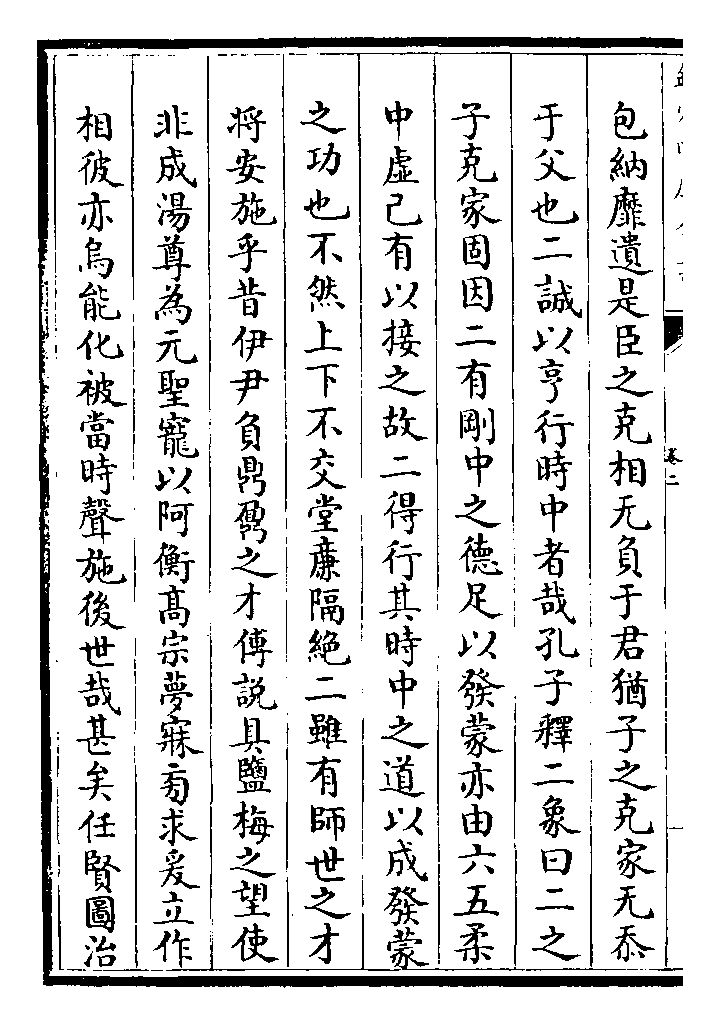 卷二
包納靡遺是臣之克相无負于君猶子之克家无忝
于父也二誠以亨行時中者哉孔子釋二象曰二之
子克家固因二有剛中之德足以發蒙亦由六五柔
中虛己有以接之故二得行其時中之道以成發蒙
之功也不然上下不交堂廉隔絶二雖有師世之才
将安施乎昔伊尹負鼎鼐之才傅説具鹽梅之望使
非成湯尊為元聖寵以阿衡髙宗夢寐旁求爰立作
相彼亦烏能化被當時聲施後世哉甚矣任賢圖治